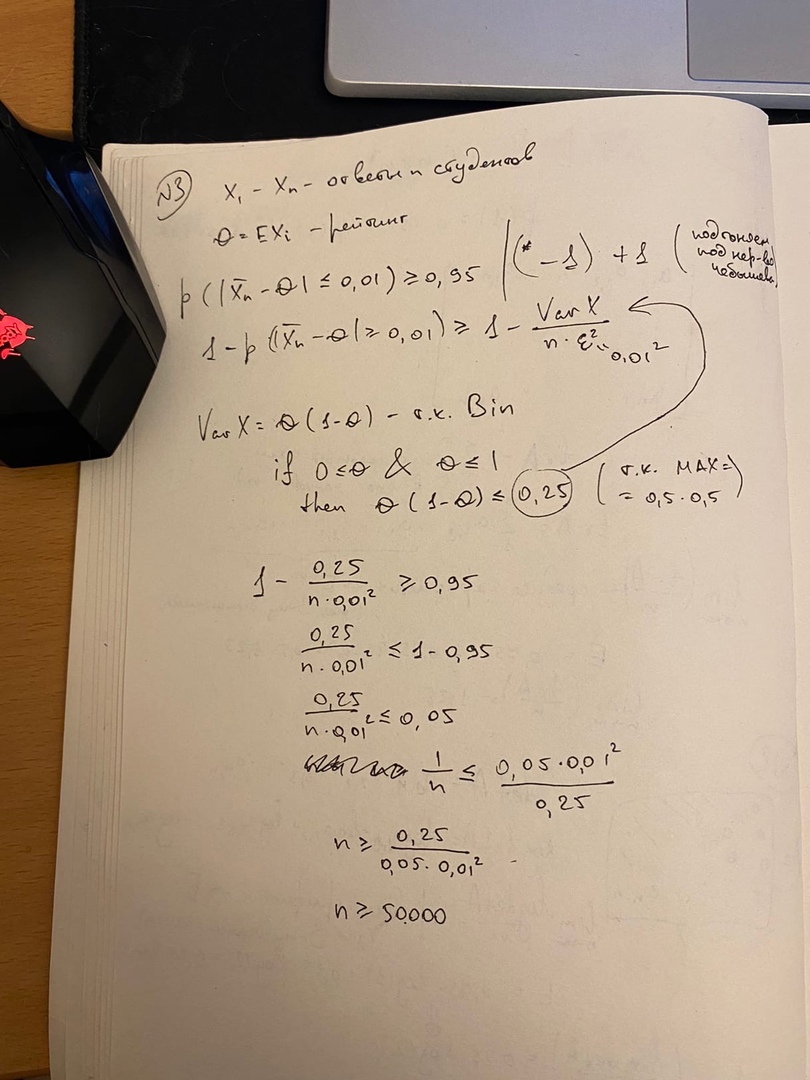 N3 X₁ - Xₙ - ответы n студентов
θ = EXᵢ - рейтинг
p(|X̄ₙ - θ| ≤ 0,01) ≥ 0,95 | (* -1) + 1 (подгоняем под нер-во Чебышева)
1 - p(|X̄ₙ - θ| ≥ 0,01) ≥ 1 - Var X / (n · ε²) = 0,01²
Var X = θ(1-θ) - т.к. Bin
if 0 ≤ θ & θ ≤ 1
then θ(1-θ) ≤ 0,25 (т.к. MAX = = 0,5 · 0,5)
1 - 0,25 / (n · 0,01²) ≥ 0,95
0,25 / (n · 0,01²) ≤ 1 - 0,95
0,25 / (n · 0,01²) ≤ 0,05
1/n ≤ 0,05 · 0,01² / 0,25
n ≥ 0,25 / (0,05 · 0,01²)
n ≥ 50000